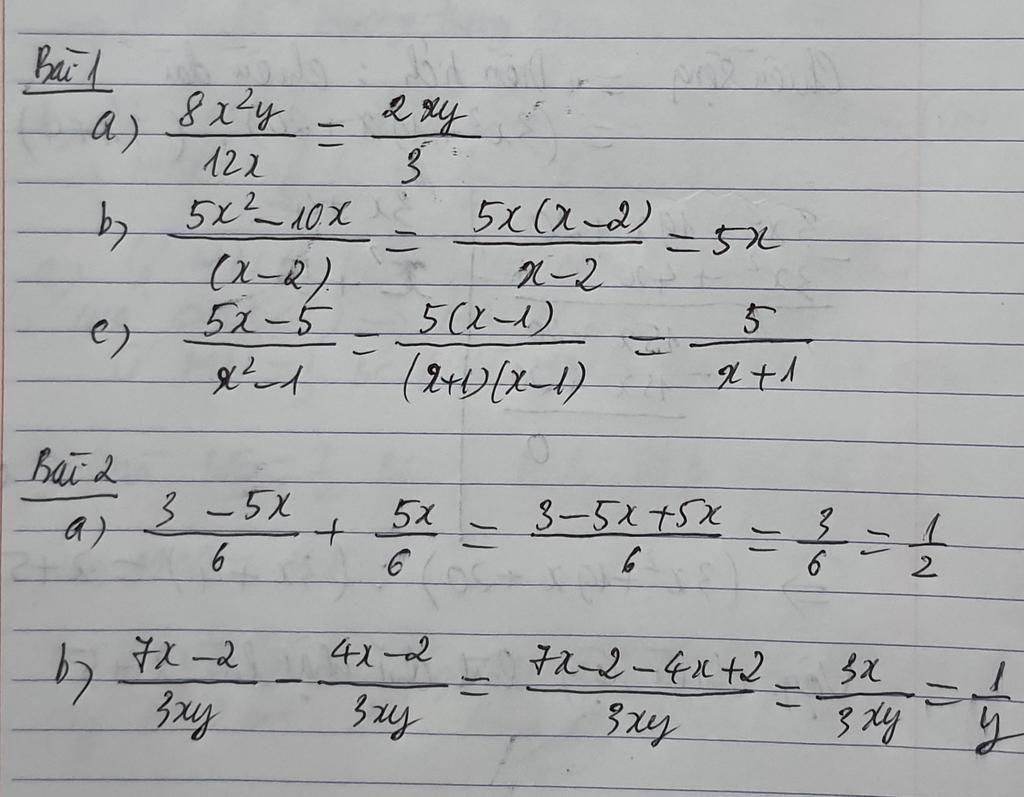 Bài 1
a) 8x²y/12x = 2xy/3
b) 5x² - 10x/(x-2) = 5x(x-2)/x-2 = 5x
c) 5x-5/x²-1 = 5(x-1)/(x+1)(x-1) = 5/x+1
Bài 2
a) 3-5x/6 + 5x/6 = 3-5x+5x/6 = 3/6 = 1/2
b) 7x-2/3xy - 4x-2/3xy = 7x-2-4x+2/3xy = 3x/3xy = 1/y